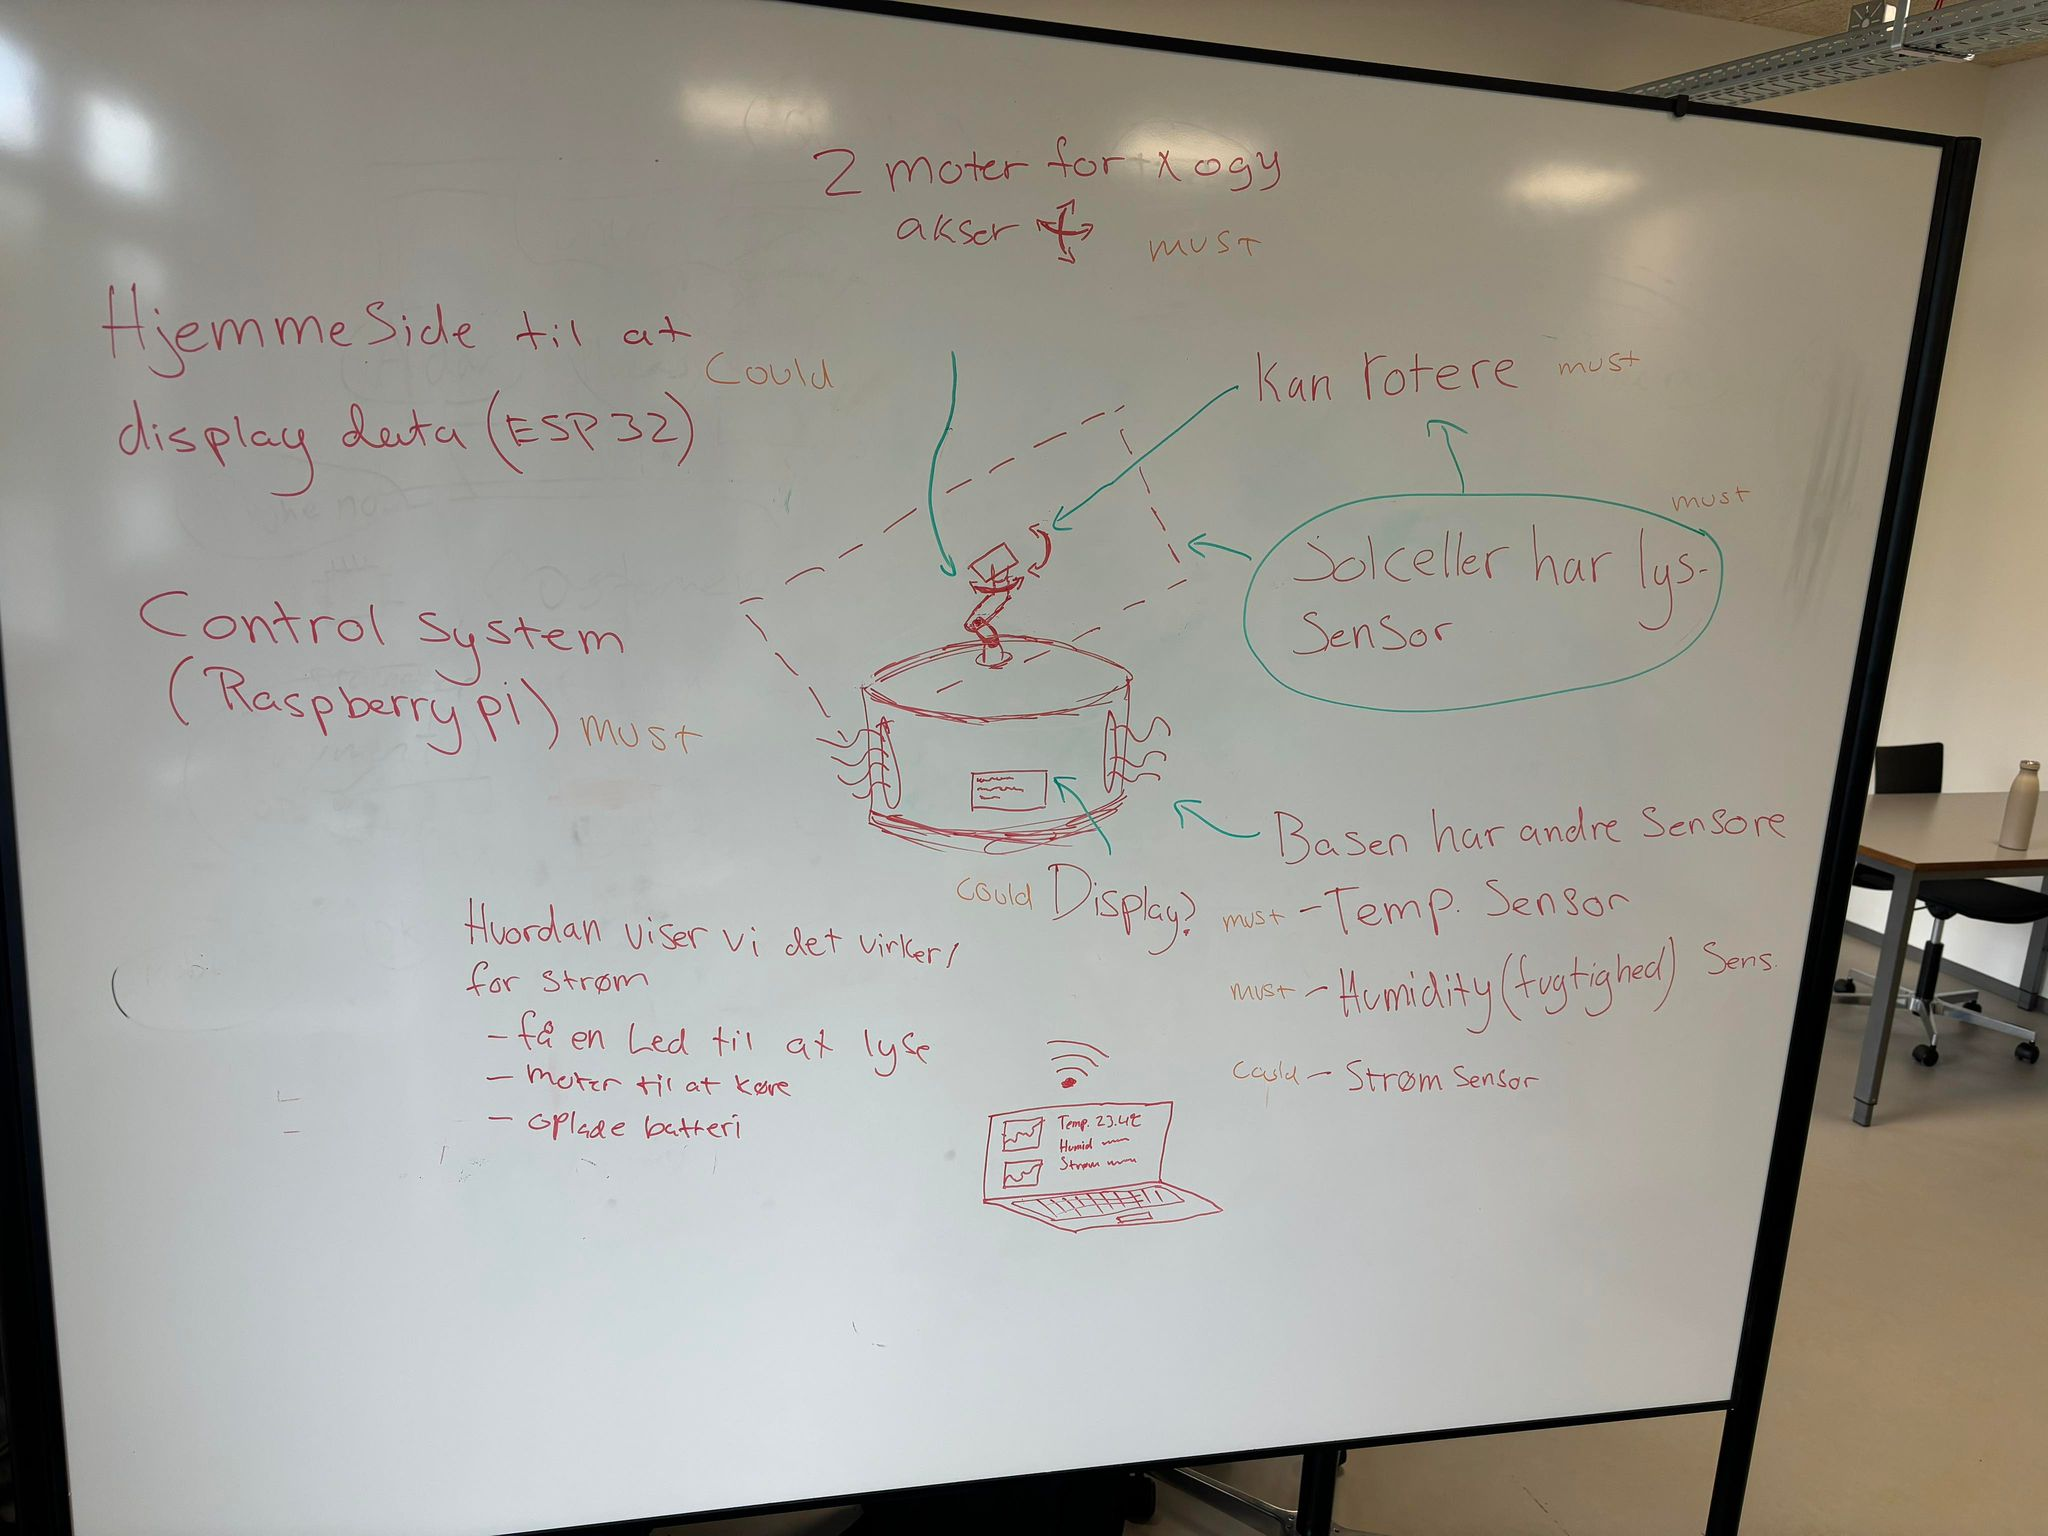 2 moter for x og y
akser
must
Hjemmeside til at
display data (ESP32)
Could
Kan rotere must
must
Solceller har lys-
sensor
Control system
(Raspberry pi) must
Basen har andre sensore
could Display?
must - Temp. Sensor
must - Humidity (fugtighed) Sens.
could - Strøm sensor
Hvordan viser vi det virker/
for strøm
- få en Led til at lyse
- moter til at køre
- oplade batteri
Temp. 23.4℃
Humid
Strøm